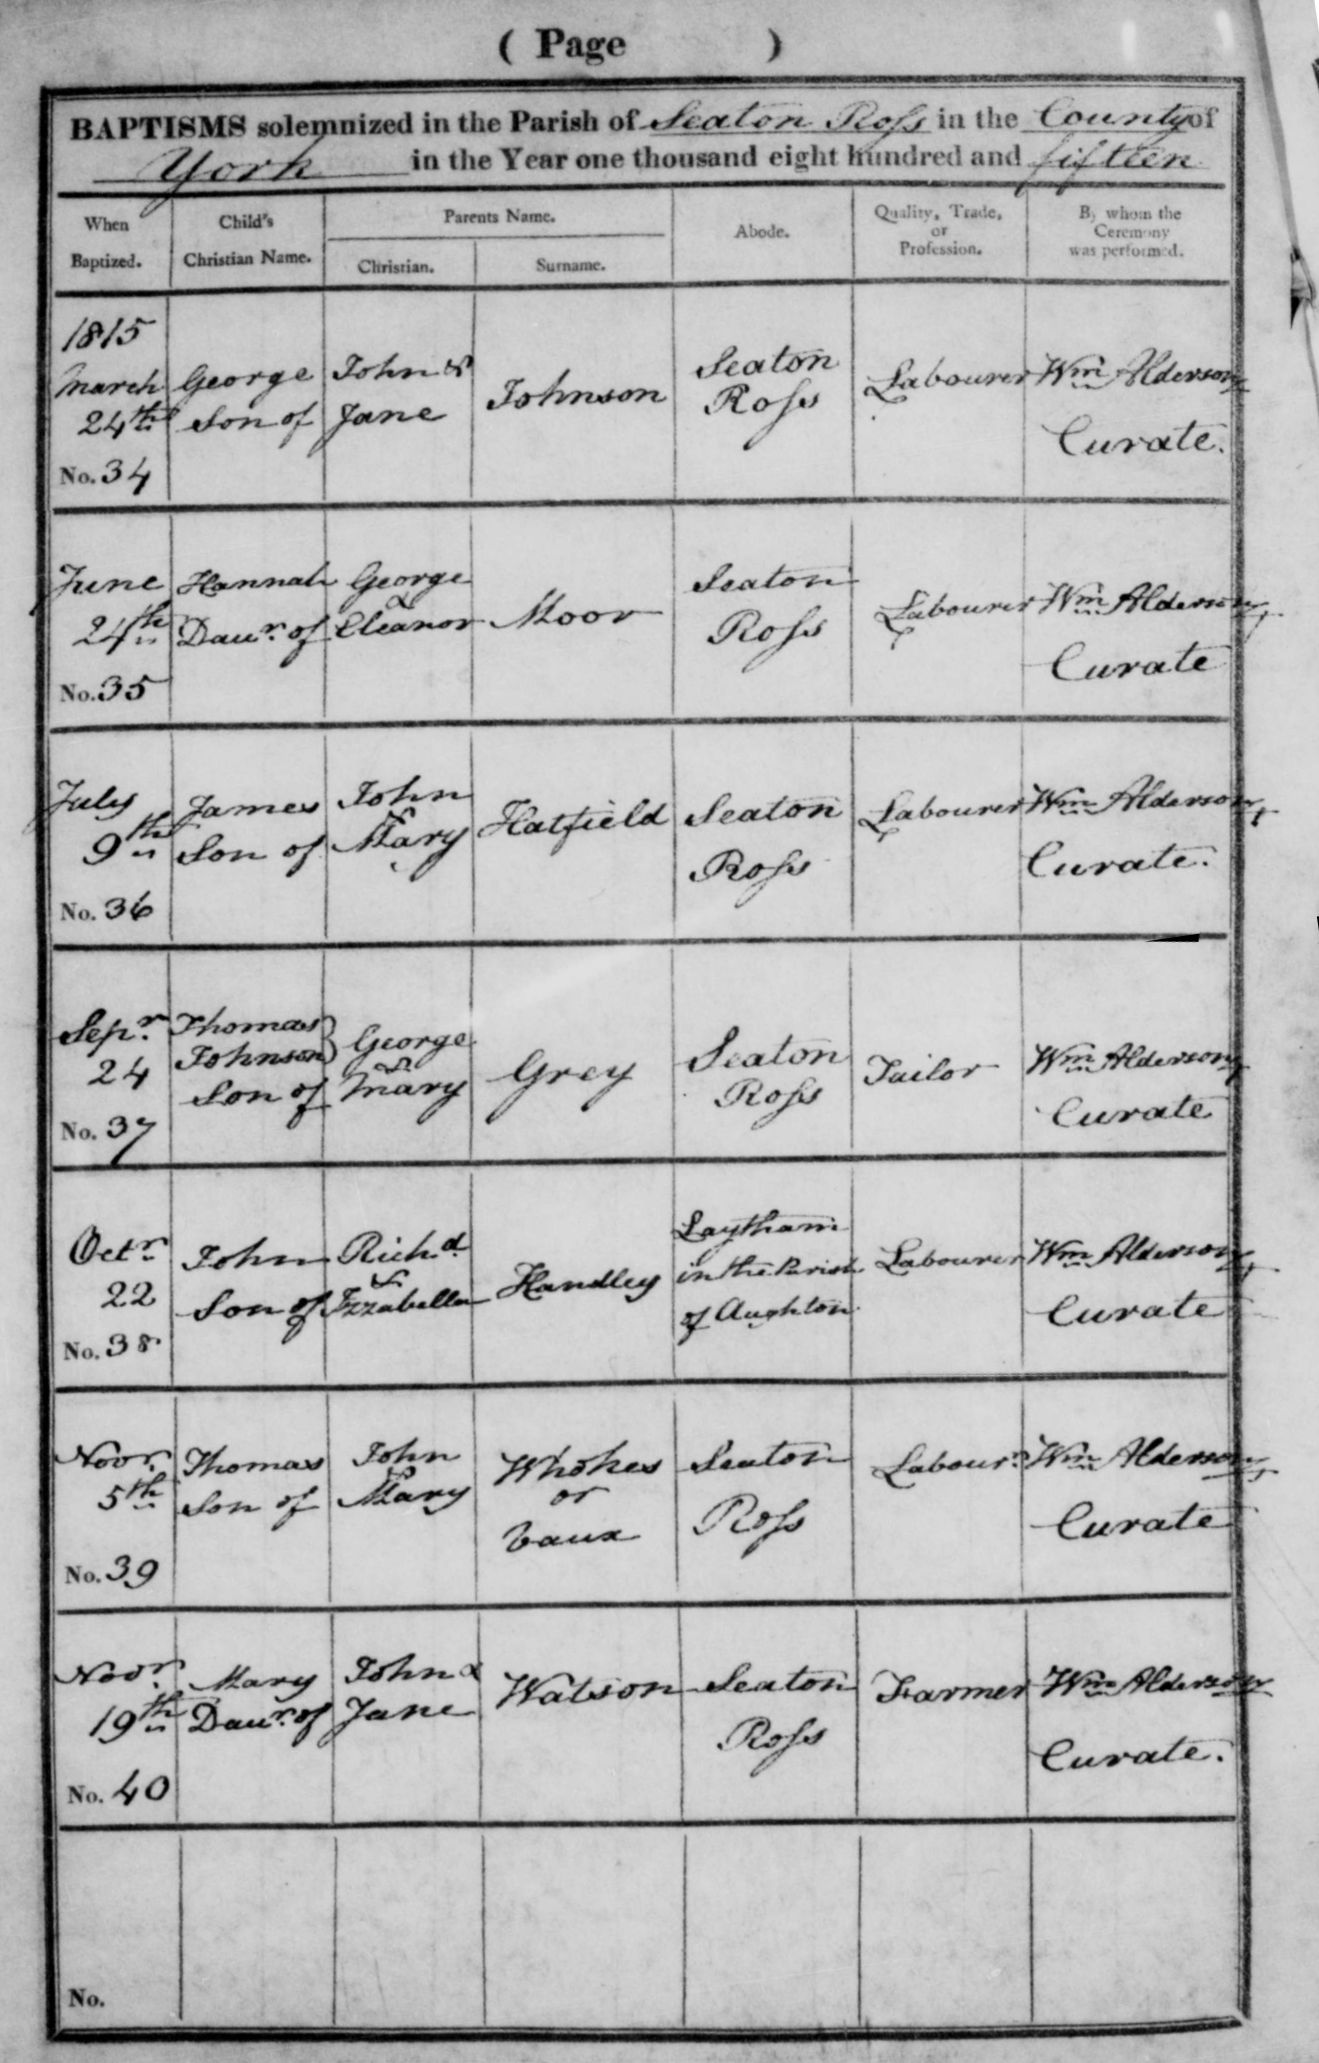 ( Page )
BAPTISMS solemnized in the Parish of Seaton Ross in the County of
York in the Year one thousand eight hundred and fifteen
When Baptized.
Child's Christian Name.
Parents Name.
Christian.
Surname.
Abode.
Quality, Trade, or Profession.
By whom the Ceremony was performed.
1815
March
24th
No. 34
George
Son of
John &
Jane
Johnson
Seaton
Ross
Labourer
Wm Alderson
Curate.
June
24th
No. 35
Hannah
Daur. of
George
&
Eleanor
Moor
Seaton
Ross
Labourer
Wm Alderson
Curate
July
9th
No. 36
James
Son of
John
&
Mary
Hatfield
Seaton
Ross
Labourer
Wm Alderson
Curate.
Sepr.
24
No. 37
Thomas
Johnson
Son of
George
&
Mary
Grey
Seaton
Ross
Tailor
Wm Alderson
Curate
Octr.
22
No. 38
John
Son of
Richd.
&
Izzabella
Handley
Laytham
in the Parish
of Aughton
Labourer
Wm Alderson
Curate
Novr.
5th
No. 39
Thomas
Son of
John
&
Mary
Whokes
or
Vaux
Seaton
Ross
Labourr.
Wm Alderson
Curate
Novr.
19th
No. 40
Mary
Daur. of
John &
Jane
Watson
Seaton
Ross
Farmer
Wm Alderson
Curate.
No.